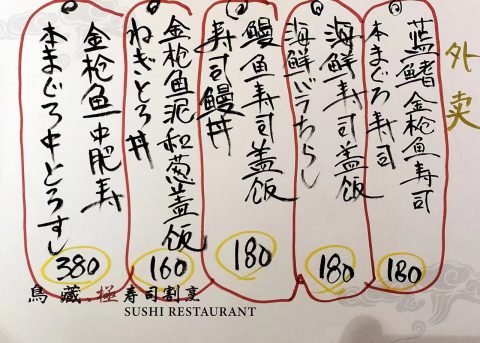 外卖
蓝鳍金枪鱼寿司
本まぐろ寿司
180
海鲜寿司盖饭
海鮮バラちらし
180
鳗鱼寿司盖饭
寿司鰻丼
180
金枪鱼泥和葱盖饭
ねぎとろ丼
160
金枪鱼中肥寿
本まぐろ中とろすし
380
鳥藏 極 寿司割烹
SUSHI RESTAURANT